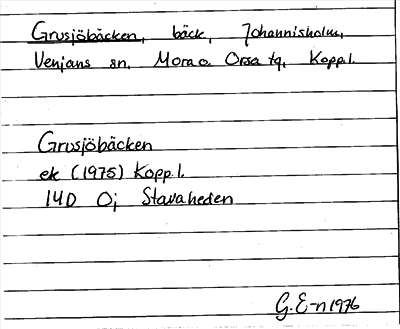 Grusjöbäcken, bäck, Johannisholm,
Venjans sn, Mora o. Orsa tg, Kopp.l.
Grusjöbäcken
ek (1975) Kopp.l.
14D 0j Stavaheden
G.E-n 1976